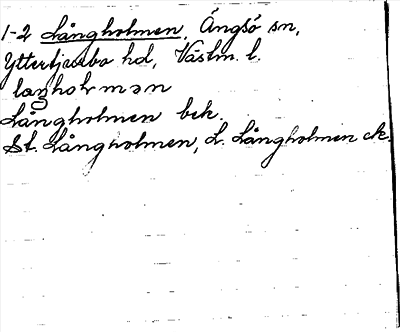 1-2 Långholmen, Ängsö sn,
Yttertjurbo hd, Västm. l.
laŋhoḷmən
Långholmen bek.
St. Långholmen, L. Långholmen ek.